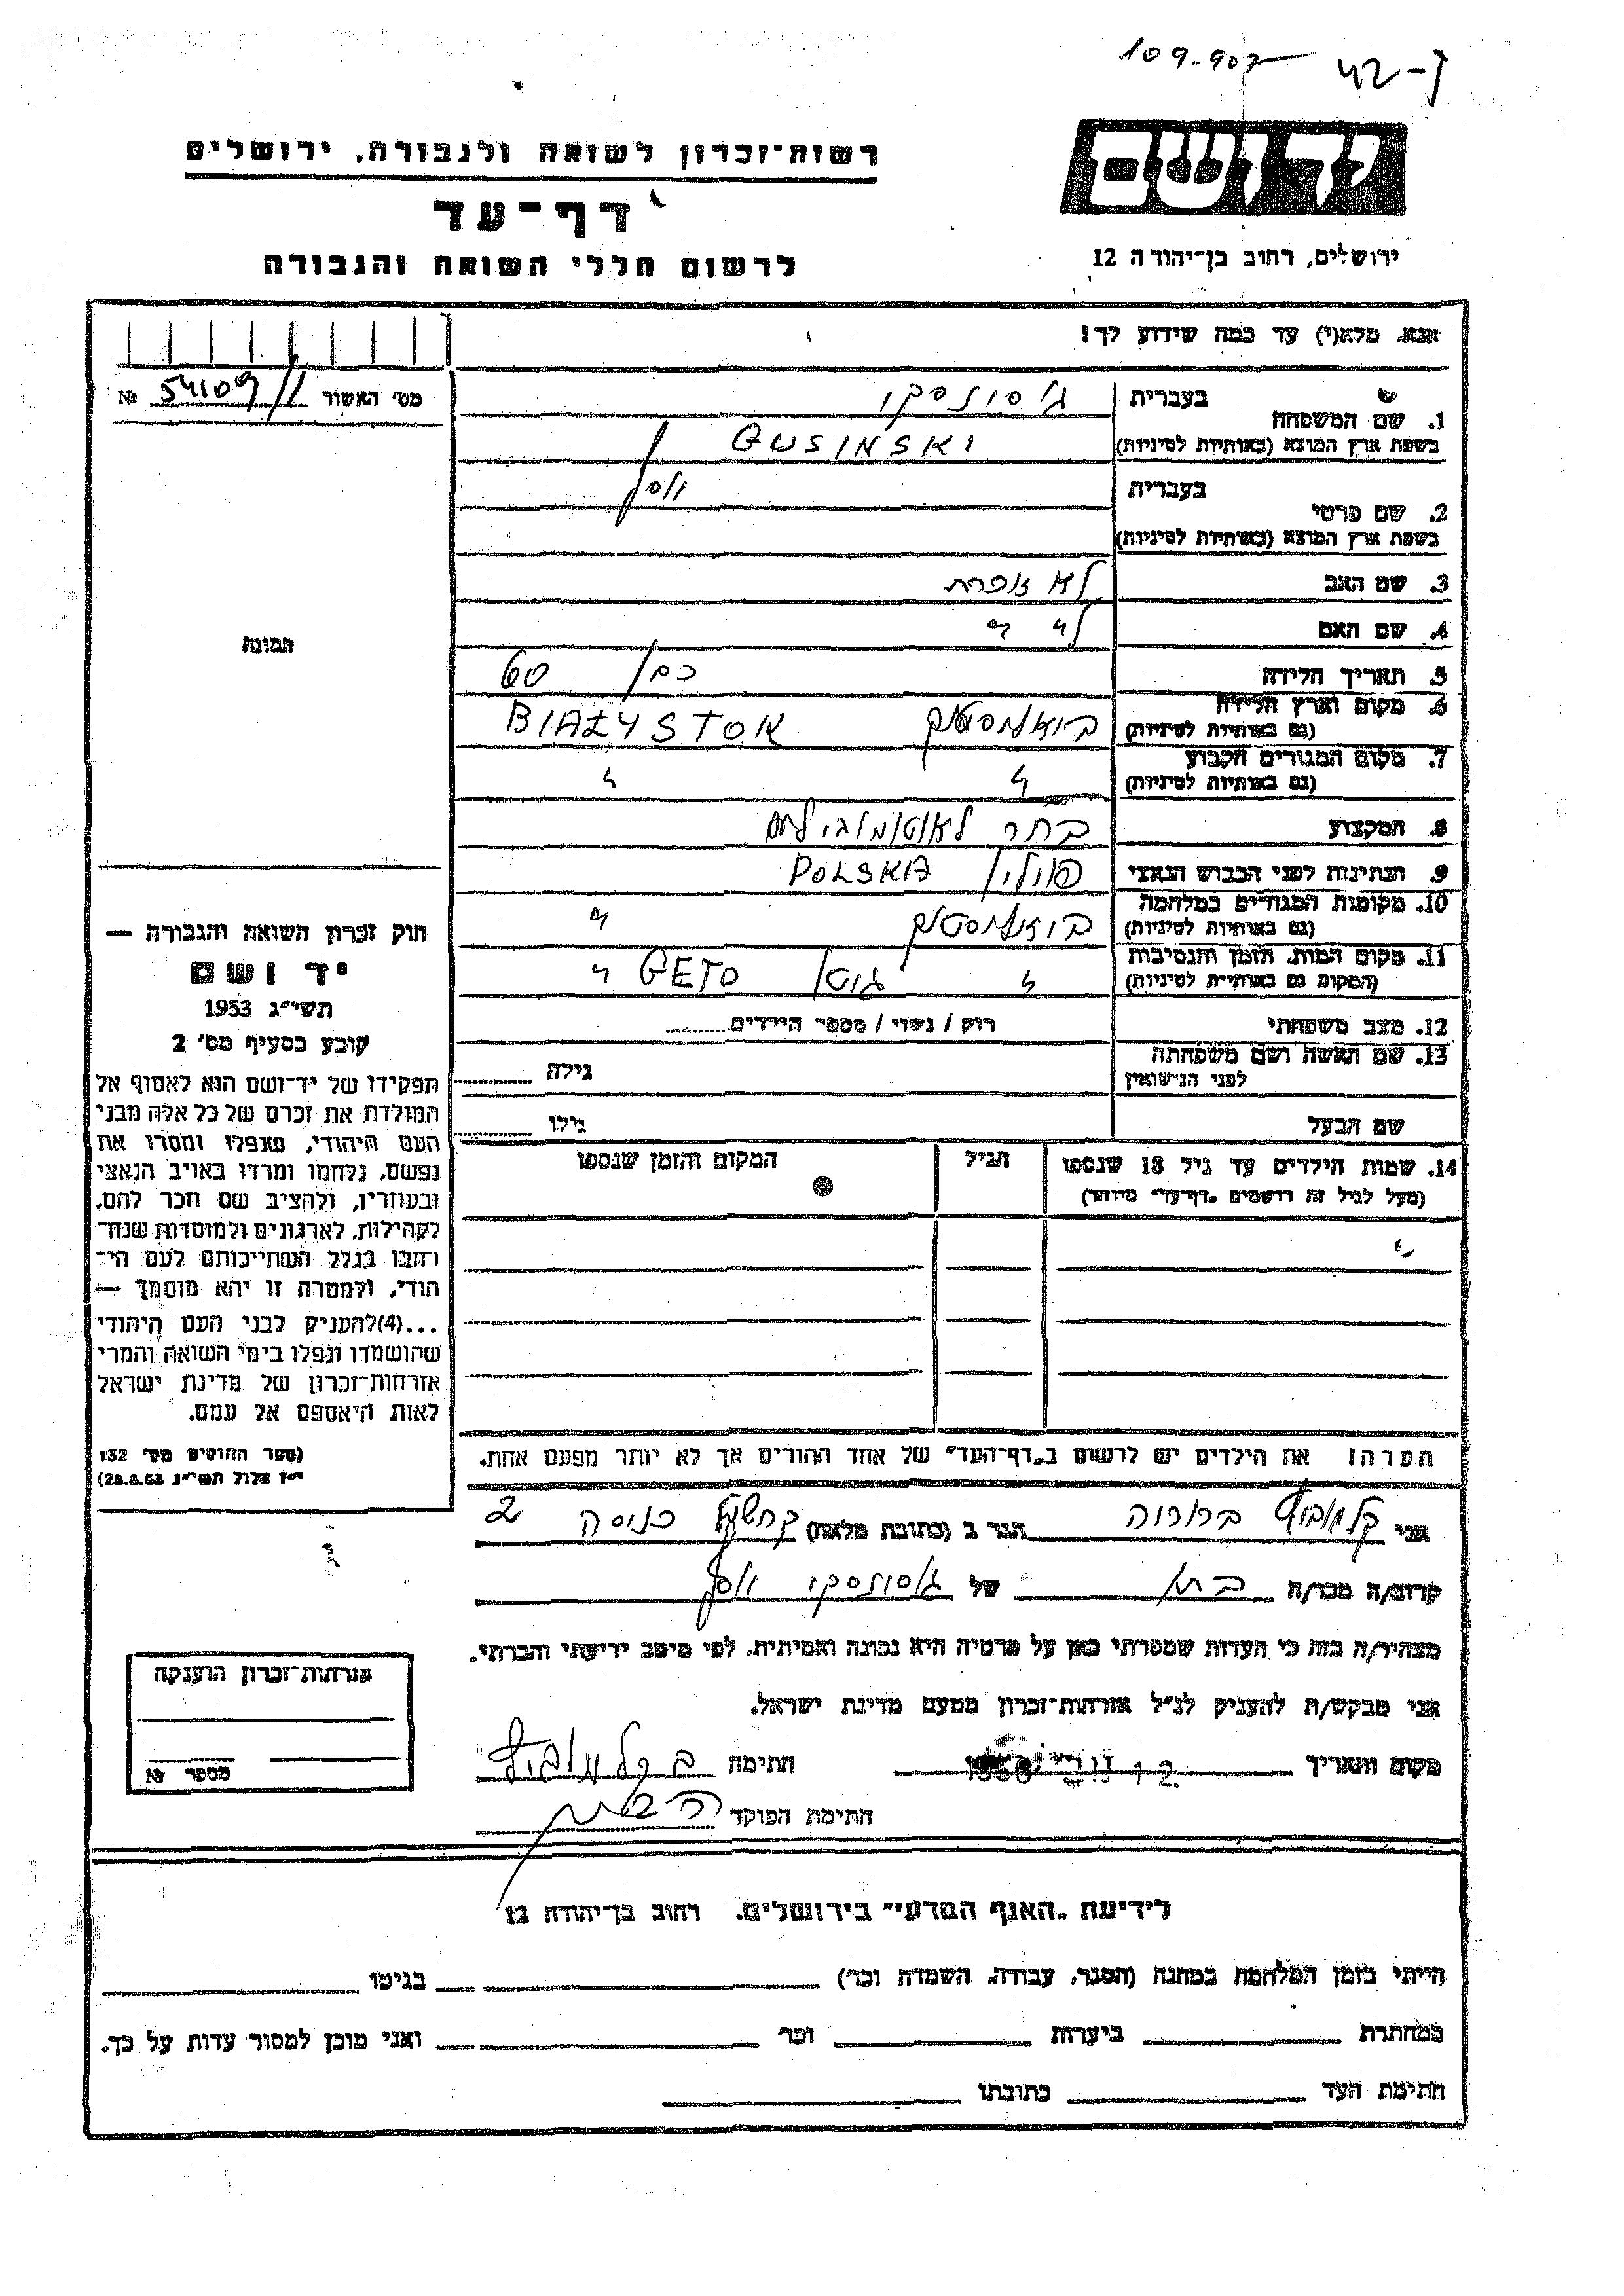 109-902 42-7
רשות־זכרון לשואה ולגבורה, ירושלים
יד ושם
דף־עד
לרשום חללי השואה והגבורה
ירושלים, רחוב בן־יהודה 12
אנא, מלא(י) עד כמה שידוע לך!
מס׳ האשור 54109/1 №
בעברית
1. שם המשפחה
גוסינסקי
בשפת ארץ המוצא (באותיות לטיניות) GUSINSKI
בעברית
יוסף
2. שם פרטי
בשפת ארץ המוצא (באותיות לטיניות)
3. שם האב לא זוכרת
4. שם האם
5. תאריך הלידה 60
6. מקום וארץ הלידה
(גם באותיות לטיניות)
ביאליסטוק BIAŁYSTOK
7. מקום המגורים הקבוע
(גם באותיות לטיניות) " "
8. המקצוע
9. הנתינות לפני הכבוש הנאצי פולין POLSKA
10. מקומות המגורים במלחמה
(גם באותיות לטיניות)
ביאליסטוק "
11. מקום המות, הזמן והנסיבות
(המקום גם באותיות לטיניות)
" גיטו GETO "
12. מצב משפחתי רווק / נשוי / מספר הילדים
13. שם האשה ושם משפחתה
לפני הנישואין
גילה
שם הבעל גילו
14. שמות הילדים עד גיל 18 שנספו
(מעל לגיל זה רושמים „דף־עד״ מיוחד)
הגיל
המקום והזמן שנספו
הערה! את הילדים יש לרשום ב„דף־העד״ של אחד ההורים אך לא יותר מפעם אחת.
תמונה
חוק זכרון השואה והגבורה —
יד ושם
תשי״ג 1953
קובע בסעיף מס׳ 2
תפקידו של יד־ושם הוא לאסוף אל
המולדת את זכרם של כל אלה מבני
העם היהודי, שנפלו ומסרו את
נפשם, נלחמו ומרדו באויב הנאצי
ובעוזריו, ולהציב שם וזכר להם,
לקהילות, לארגונים ולמוסדות שנח־
רבו בגלל השתייכותם לעם הי־
הודי, ולמטרה זו יהא מוסמך —
...(4)להעניק לבני העם היהודי
שהושמדו ונפלו בימי השואה והמרי
אזרחות־זכרון של מדינת ישראל
לאות היאספם אל עמם.
(ספר החוקים מס׳ 132
י״ז אלול תשי״ג 28.8.53)
אני ברוריה הגר ב (כתובת מלאה) 2
קרוב/ה מכר/ה של גוסינסקי יוסף
מצהיר/ה בזה כי העדות שמסרתי כאן על פרטיה היא נכונה ואמיתית, לפי מיטב ידיעתי והכרתי.
אני מבקש/ת להעניק לנ״ל אזרחות־זכרון מטעם מדינת ישראל.
מקום ותאריך 12 1956 חתימה
חתימת הפוקד
אזרחות־זכרון הוענקה
מספר №
לידיעת „האגף המדעי״ בירושלים, רחוב בן־יהודה 12
הייתי בזמן המלחמה במחנה (הסגר, עבודה, השמדה וכו׳) בגיטו
במחתרת ביערות וכו׳ ואני מוכן למסור עדות על כך.
חתימת העד כתובתו